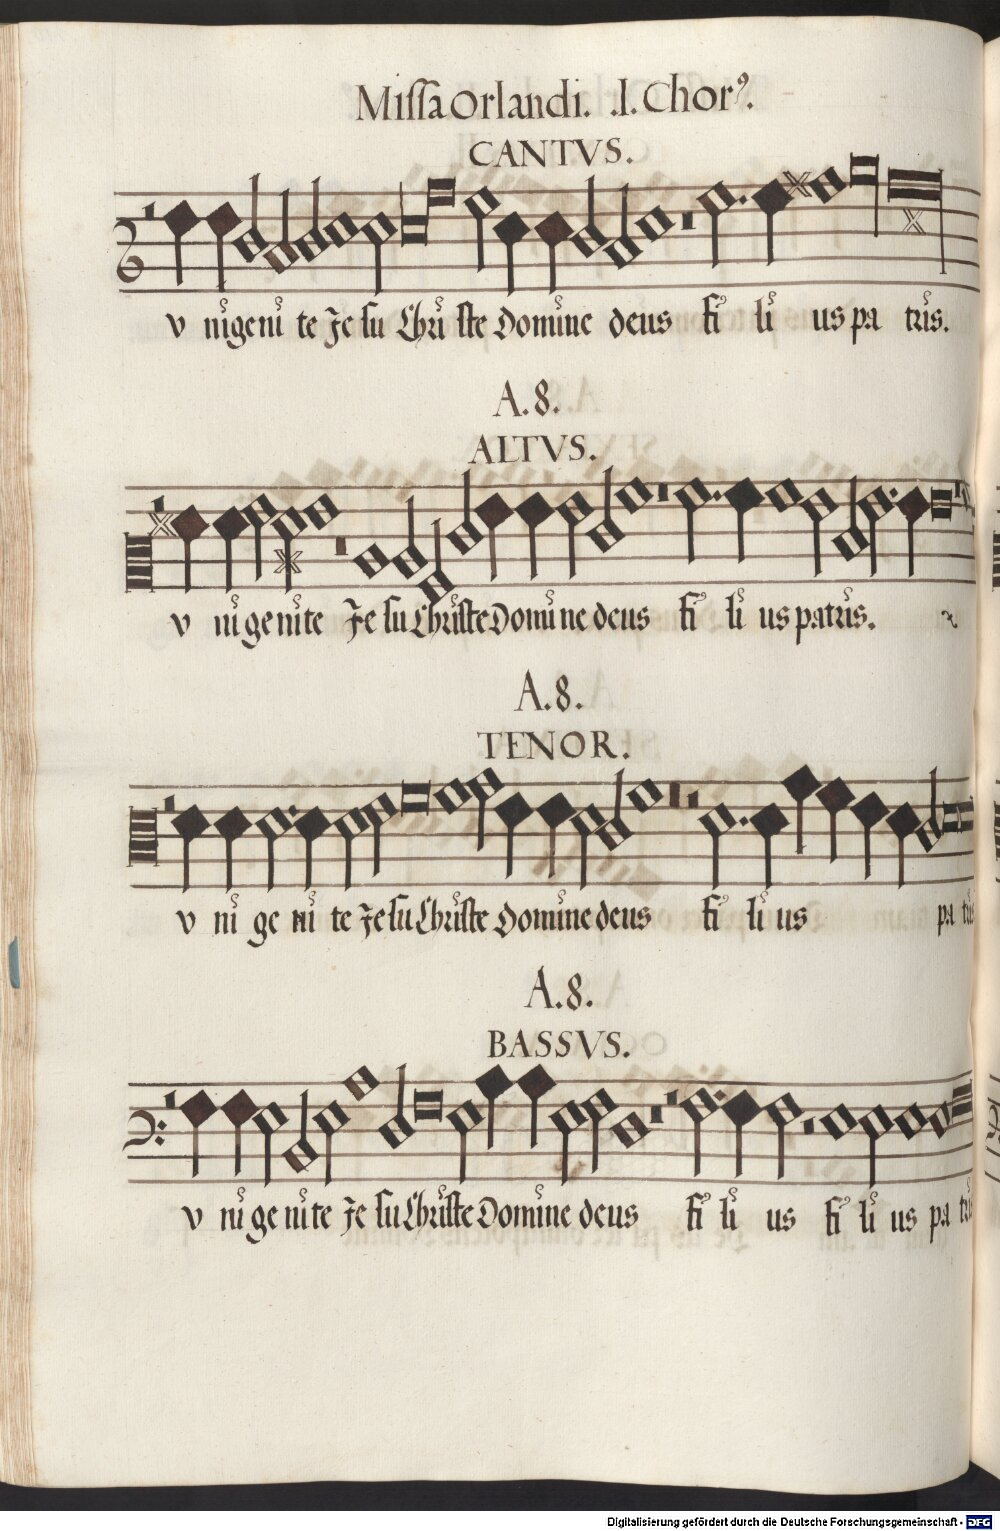 Missa Orlandi. .I. Chorꝰ.
CANTVS.
v nigeni te Je su Chri ste Domine deus fi li us pa tris.
A. 8.
ALTVS.
v ni ge nite Je su Christe Domi ne deus fi li us patris.
A. 8.
TENOR.
v ni ge ni te Je su Christe Domine deus fi li us pa tris
A. 8.
BASSVS.
v ni ge nite Je su Christe Domine deus fi li us fi li us pa tris
Digitalisierung gefördert durch die Deutsche Forschungsgemeinschaft - DFG